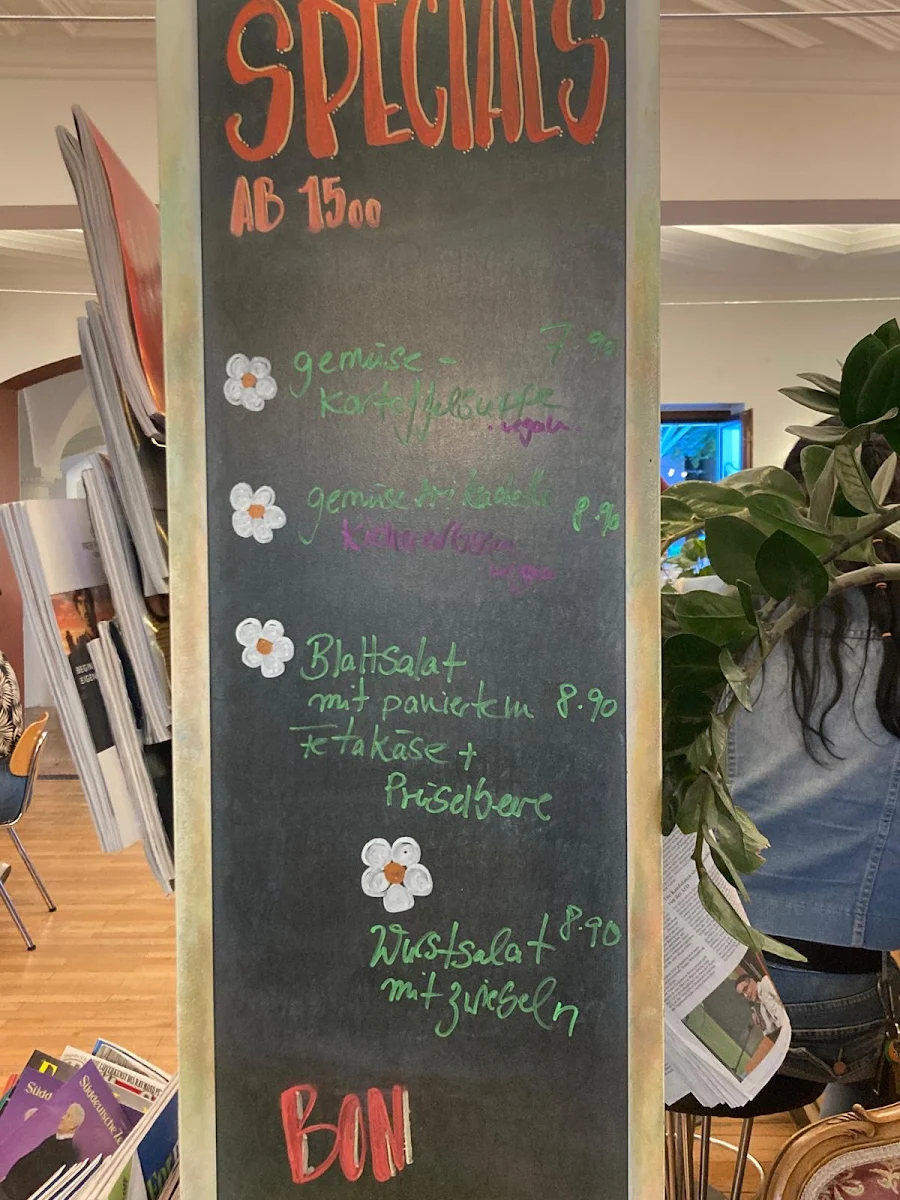 SPECIALS
AB 15 00
gemüse - 7.90
Kartoffelsuppe
. vegan .
gemüse 8.90
vegan
Blattsalat
mit paniertem 8.90
Fetakäse +
Preiselbeere
Wurstsalat 8.90
mit zwiebeln
BON
Süddeutsche Ze
Südd